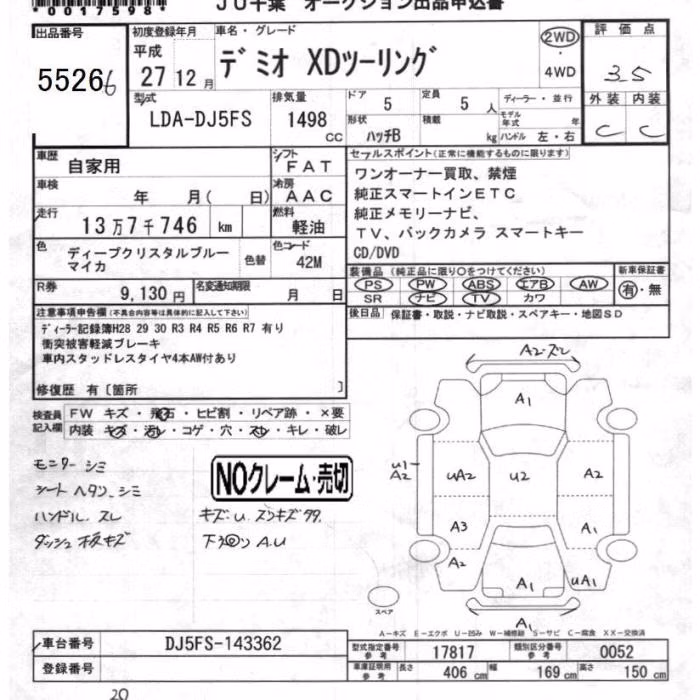 *00175984*
JU千葉 オークション出品申込書
出品番号 55266
初度登録年月 平成 27 12月
車名・グレード デミオ XDツーリング
2WD ・ 4WD
評価点 3.5
外装 C 内装 C
型式 LDA-DJ5FS
排気量 1498 CC
ドア 5 定員 5 人 ディーラー・並行
形状 ハッチB 積載 kg モデル年式 年 ハンドル 左・右
車歴 自家用
シフト FAT
車検 年 月( 日)
冷房 AAC
走行 13万7千746 km
燃料 軽油
色 ディープクリスタルブルーマイカ 色替
色コード 42M
R券 9,130円 名変通知期限 月 日
セールスポイント(正常に機能するものに限ります)
ワンオーナー買取、禁煙
純正スマートインETC
純正メモリーナビ、
TV、バックカメラ スマートキー
CD/DVD
装備品 (純正品に限り○をつけてください) 新車保証書
PS PW ABS エアB AW 有・無
SR ナビ TV カワ
後日品 保証書・取説・ナビ取説・スペアキー・地図SD
注意事項申告欄(不具合内容等は具体的に記入して下さい)
ディーラー記録簿H28 29 30 R3 R4 R5 R6 R7 有り
衝突被害軽減ブレーキ
車内スタッドレスタイヤ4本AW付あり
修復歴 有〔箇所 〕
検査員記入欄 FW キズ・飛石・ヒビ割・リペア跡・×要
内装 キズ・汚レ・コゲ・穴・スレ・キレ・破レ
モニターシミ
シートヘタリ、シミ
ハンドル、スレ
ダッシュ板キズ
NOクレーム・売切
キズ U.
A.U
A2・ズレ
A1
U1 A2
UA2
U2
A2
A3
A1
A2
A1
UA1
A1
スペア
A-キズ E-エクボ U-凹み W-補修跡 S-サビ C-腐食 XX-交換済
車台番号 DJ5FS-143362
登録番号
型式指定番号 参考 17817 類別区分番号 参考 0052
車庫証明用 参考 長さ 406 cm 幅 169 cm 高さ 150 cm
20